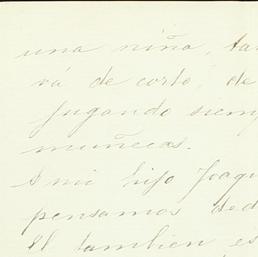 una niña, ta
vá de corto, de
jugando siemp
muñecas.
A mi hijo Joaqu
pensamos ded
El tambien es